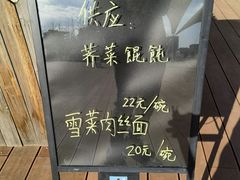 供应:
荠菜馄饨
22元/碗
雪菜肉丝面
20元/碗